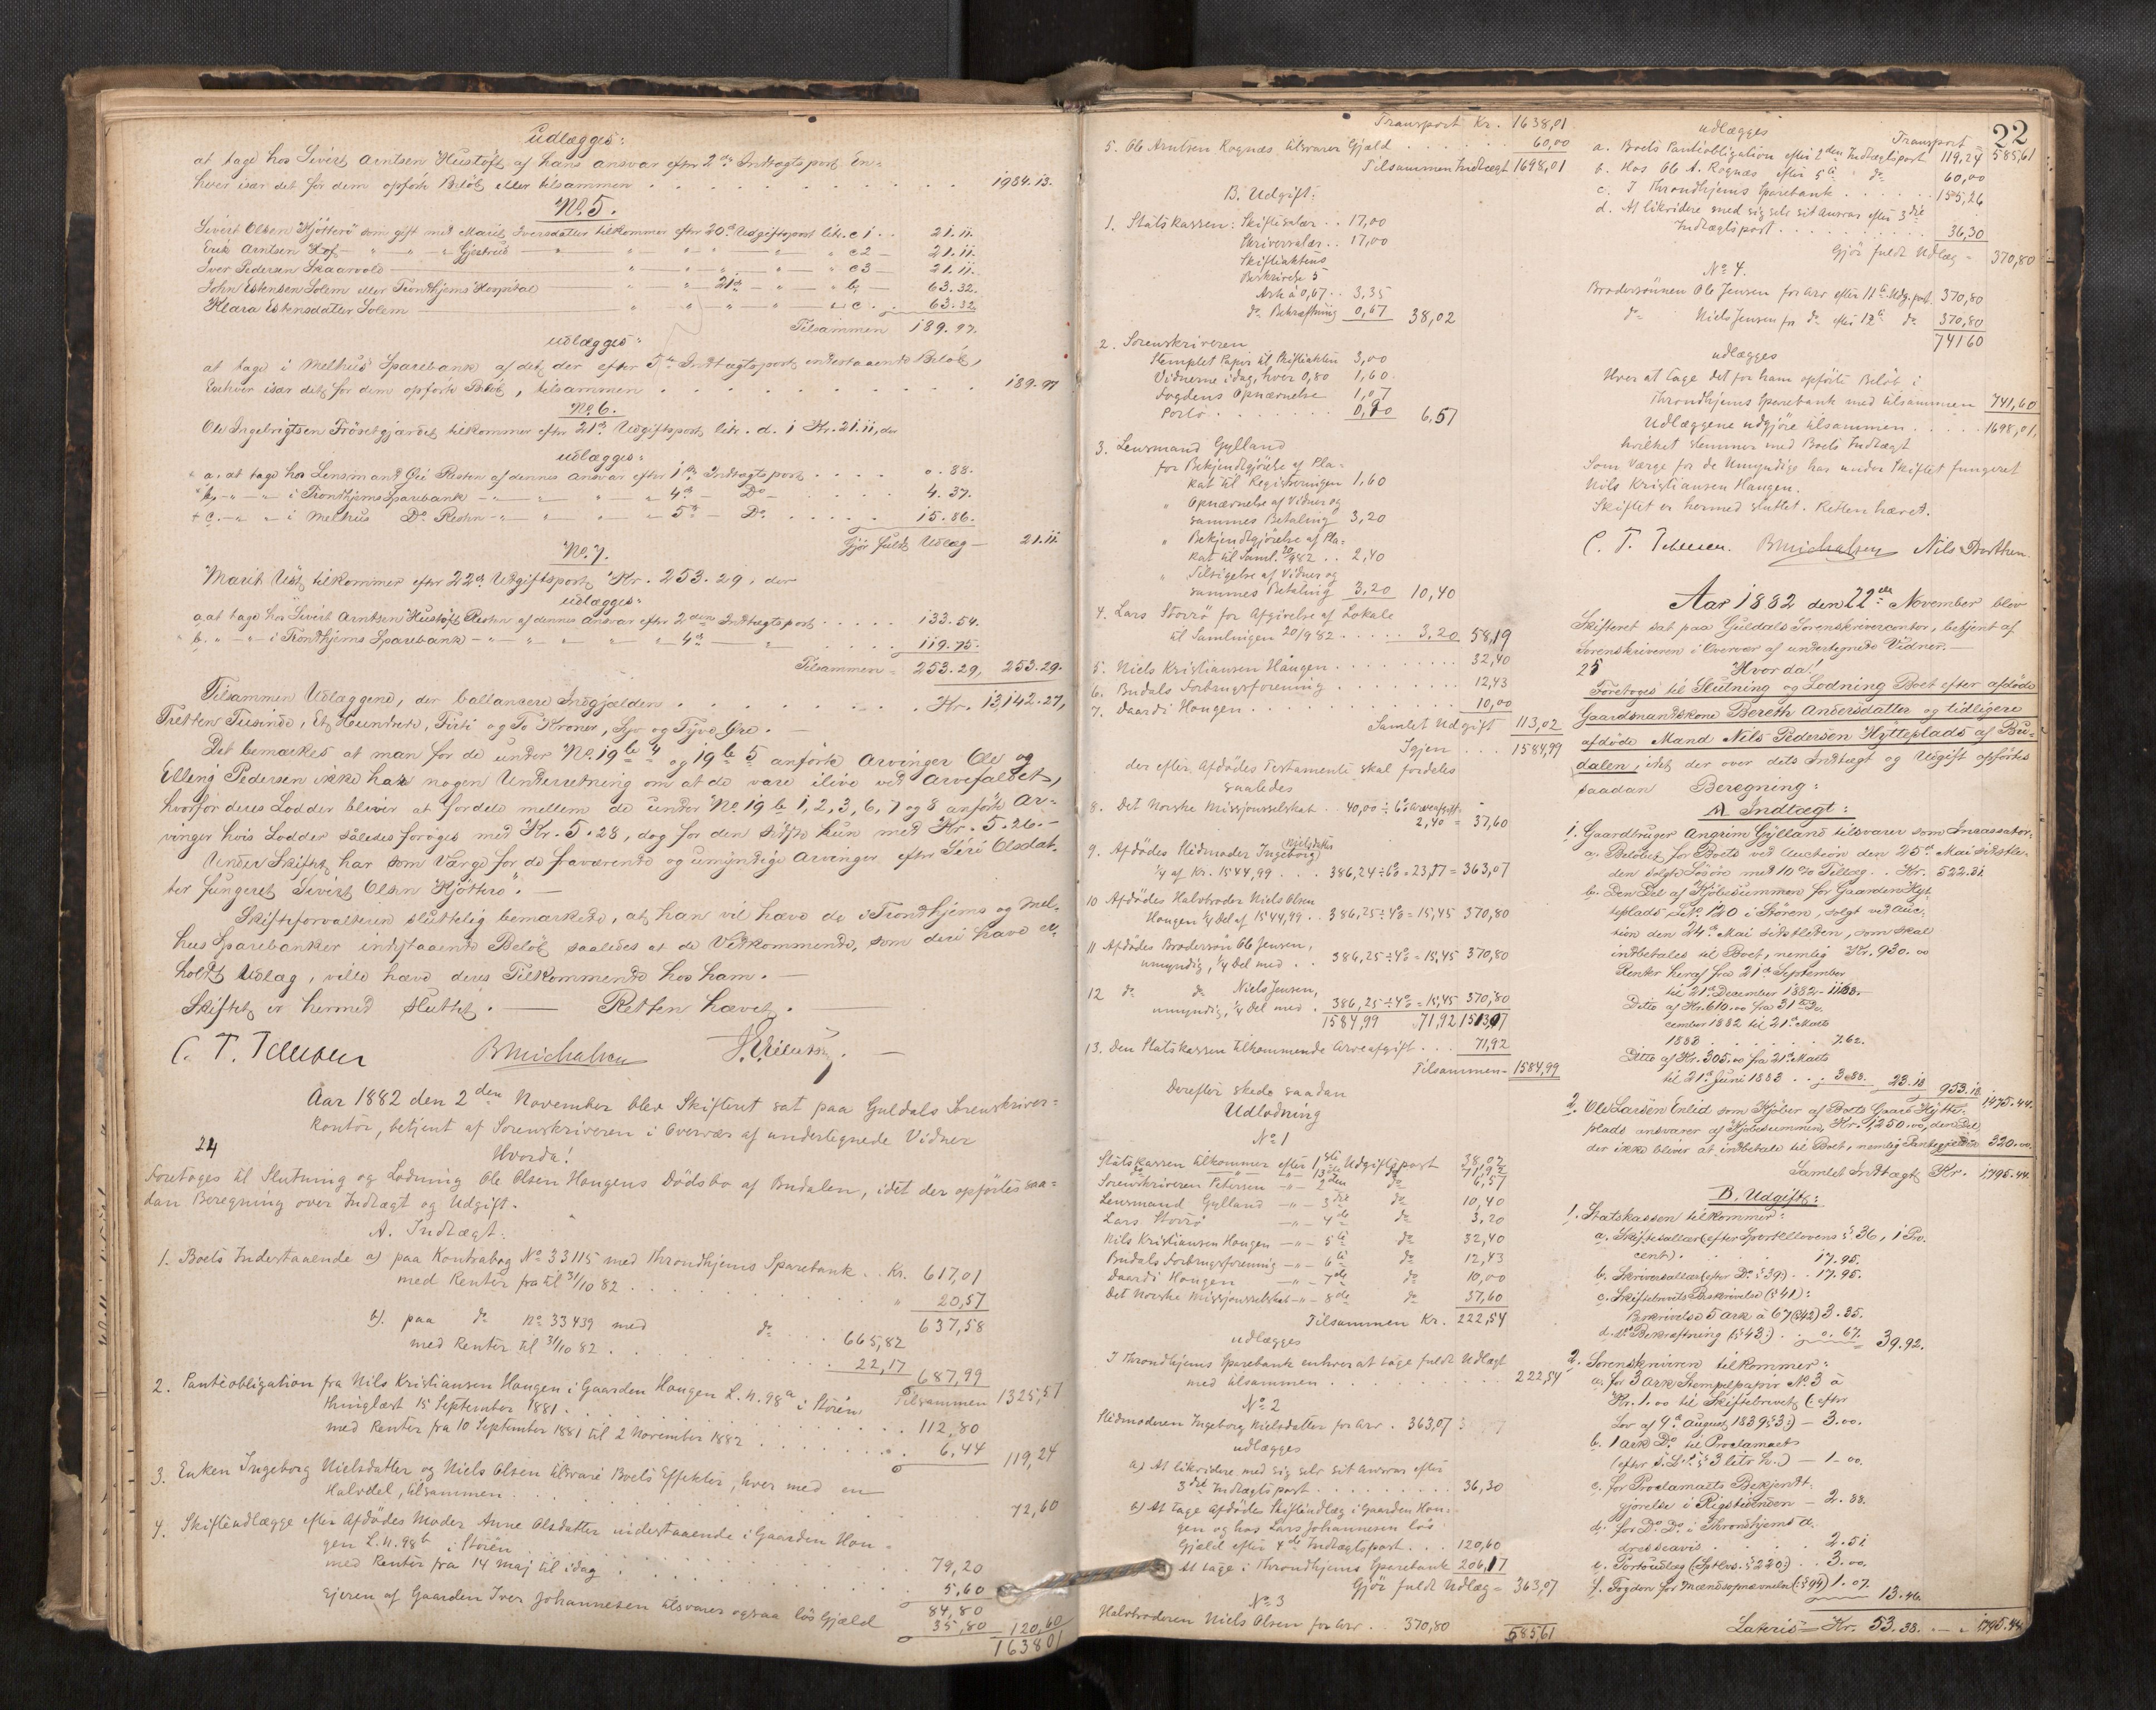 udlægges:
at tage hos Sivert Arntsen Hustøft af hans ansvar efter 2den Indtægtspost En-
hver især det for dem opførte Beløb eller tilsammen . . . 1984.13.
No. 5.
Sivert Olsen Kjötterö som gift med Marit Iversdatter tilkommer efter 20de Udgiftspost litr. c 1 . . 21.11.
Erik Arntsen Hof - " - " - Gjestrud - " - " - " c 2 - 21.11.
Iver Pedersen Skaarvold - " - " - " c 3 - 21.11.
John Estensen Solem eller Trondhjems Hospital - " - 21de - " - b - 63.32.
Klara Estensdatter Solem - " - " - " c . 63.32
Tilsammen 189.97.
udlægges:
at tage i Melhus Sparebank af det der efter 5te Indtægtspost indestaaende Beløb,
Enhver især det for dem opførte Beløb, tilsammen . . . 189.97
No. 6.
Ole Ingebrigtsen Frösetgjærdet tilkommer efter 21de Udgiftspost litr. d. i Kr. 21.11, der
udlægges:
a. at tage hos Lensmand Gie Resten af dennes ansvar efter 1ste Indtægtspost . . . 0.88.
b. - " - " i Trondhjems Sparebank - " - " - " 4de - Do . . . 4.37.
c. - " - " i Melhus Do Resten - " - " - " 5te - Do . . . 15.86.
Gjør fuldt Udlæg - 21.11
No. 7.
Marit Ust tilkommer efter 22de Udgiftspost Kr. 253.29, der
udlægges:
a. at tage hos Sivert Arntsen Hustøft Resten af dennes ansvar efter 2den Indtægtspost . . . 133.54.
b. " - " - i Trondhjems Sparebank - " - " - " - 4de - " . . . 119.75.
Tilsammen = 253.29, 253.29.
Tilsammen Udlæggene, der ballancere Indgjælden . . . Kr. 13,142.27,
Tretten Tusinde, Et Hundrede, Firti og To Kroner, Syv og Tyve Øre. -
Det bemærkes at man for de under No. 19 b 4 og 19 b 5 anførte Arvinger Ole og
Elling Pedersen ikke har nogen Underretning om at de vare ilive ved Arvefaldet,
hvorfor deres Lodder bliver at fordele mellem de under No. 19 b 1, 2, 3, 6, 7 og 8 anførte Ar-
vinger hvis Lodder således forøges med Kr. 5.28, dog for den sidste kun med Kr. 5.26. -
Under Skiftet har som Værge for de fraværende og umyndige Arvinger efter Siri Olsdat-
ter fungeret Sivert Olsen Kjötterö. -
Skifteforvalteren sluttelig bemærkede, at han vil hæve de i Trondhjems og Mel-
hus Sparebanker indestaaende Beløb saaledes at de Vedkommende, som deri have er-
holdt Udlæg, ville hæve deres Tilkommende hos ham. -
Skiftet er hermed sluttet. - Retten hævet. -
C. T. Petersen BMichalsen
Aar 1882 den 2den November blev Skifteret sat paa Guldals Sorenskriver-
kontor, betjent af Sorenskriveren i Overvær af undertegnede Vidner
24 Hvorda!
Foretoges til Slutning og Lodning Ole Olsen Hougens Dödsbo af Budalen, idet der opførtes saa-
dan Beregning over Indtægt og Udgift.
A. Indtægt.
1. Boets Indestaaende a) paa Kontrabog No 33115 med Throndhjems Sparebank . . Kr. 617,01
med Renter fra til 31/10 82 . . . " 20,57
637,58
b). paa do No 33439 med do . . . 665,82
med Renter til 31/10 82 . . . 22,17 687,99
Tilsammen 1325,57
2. Panteobligation fra Nils Kristiansen Hougen i Gaarden Hougen L.N. 98a i Stören
thinglæst 15 September 1881 . . . 112,80
med Renter fra 10 September 1881 til 2 November 1882 . . . 6,44 119,24
3. Enken Ingeborg Nielsdatter og Niels Olsen tilsvare Boets Effekter, hver med en
Halvdel, tilsammen . . . 72,60
4. Skifteudlægge efter Afdødes Moder Anne Olsdatter indestaaende i Gaarden Hou-
gen L.N. 98b i Stören . . . 79,20
med Renter fra 14 Maj til idag . . . 5,60
84,80
Ejeren af Gaarden Iver Johannesen tilsvarer ogsaa lös Gjæld 35,80 120,60
1638,01
Transport Kr. 1638,01
5. Ole Arntsen Rognæs tilsvarer Gjæld . . . 60,00
Tilsammen Indtægt 1698,01
B. Udgift:
1. Statskassen: Skiftesalær . . 17,00
Skriversalær . . 17,00
Skifteaktens
Beskrivelse 5
Ark à 0,67 . . 3,35
do Bekræftning 0,67 38,02
2. Sorenskriveren
Stemplet Papir til Skifteakten 3,00
Vidnerne idag, hver 0,80 1,60
Fogdens Opnævnelse 1,07
Porto . . . 0,90 6,57
3. Lensmand Gylland
for Bekjendtgjörelse af Pla-
kat til Registreringen 1,60
" Opnævnelse af Vidner og
sammes Betaling 3,20
" Bekjendtgjörelse af Pla-
kat til Saml. 20/9 82 . . 2,40
" Tilsigelse af Vidner og
sammes Betaling 3,20 10,40
4. Lars Storrö for Afgivelse af Lokale
til Samlingen 20/9 82 . . . 3,20 58,19
5. Niels Kristiansen Hougen . . . 32,40
6. Budals Forbrugsforening . . . 12,43
7. Daardi Hougen . . . 10,00
Samlet Udgift 113,02
Igjen . . . 1584,99
der efter Afdødes Testamente skal fordeles
saaledes
8. Det Norske Missjonsselskab . 40,00 ÷ 6% Arveafgift
2,40 = 37,60
9. Afdødes Stedmoder Ingeborg Nielsdatter
1/4 af Kr. 1544,99 . . . 386,24 ÷ 6% = 23,17 = 363,07
10 Afdødes Halvbroder Niels Olsen
Hougen 1/4 Del af 1544,99 . . 386,25 ÷ 4% = 15,45 370,80
11 Afdødes Brodersön Ole Jensen,
umyndig, 1/4 Del med . . 386,25 ÷ 4% = 15,45 370,80
12 do do Niels Jensen,
umyndig, 1/4 Del med . 386,25 ÷ 4% = 15,45 370,80
1584,99 71,92 1513,07
13. Den Statskassen tilkommende Arveafgift . . . 71,92
Tilsammen = 1584,99
Derefter skede saadan
Udlodning
No 1
Statskassen tilkommer efter 1ste Udgiftspost 38,02
do " 13de do 71,92
Sorenskriveren Petersen - " - 2den do 6,57
Lensmand Gylland - " - 3die do 10,40
Lars Storrö - " - 4de do 3,20
Nils Kristiansen Hougen - " - 5te do 32,40
Budals Forbrugsforening - " - 6te do 12,43
Daardi Hougen - " - 7de do 10,00
Det Norske Missjonsselskab - " - 8de do 37,60
Tilsammen Kr. 222,54
udlægges
I Throndhjems Sparebank enhver at tage fuldt Udlægt
med tilsammen . . . 222,54
No 2
Stedmoderen Ingeborg Nielsdatter for Arv . 363,07
udlægges
a) At likvidere med sig selv sit Ansvar efter
3die Indtægtspost . . . 36,30
b) At tage Afdødes Skifteudlæg i Gaarden Hou-
gen og hos Lars Johannesen lös
Gjæld efter 4de Indtægtspost . . . 120,60
At tage i Throndhjems Sparebank 206,17
Gjör fuldt Udlæg = 363,07
No 3
Halvbroderen Niels Olsen for Arv . . 370,80 585,61
22
udlægges Transport = 585,61
a. Boets Panteobligation efter 2den Indtægtspost 119,24
b. Hos Ole A. Rognæs efter 5te do 60,00
c. I Throndhjems Sparebank . . . 155,26
d. At likvidere med sig selv sit Ansvar efter 3die
Indtægtspost . . . 36,30
Gjör fuldt Udlæg = 370,80
No 4.
Brodersönnen Ole Jensen for Arv efter 11te Udg.post. 370,80
do Niels Jensen for do efter 12te do 370,80
741,60
udlægges
Hver at tage det for ham opförte Belöb i
Throndhjems Sparebank med tilsammen 741,60
Udlæggene udgjöre tilsammen . . . 1698,01,
hvilket stemmer med Boets Indtægt
Som Værge for de Umyndige har under Skiftet fungeret
Nils Kristiansen Hougen.
Skiftet er hermed sluttet. Retten hævet.
C. T. Petersen. BMichalsen Nils Dorthen.
Aar 1882 den 22de November blev
Skifteret sat paa Guldals Sorenskrivercontor, betjent af
Sorenskriveren i Overvær af undertegnede Vidner. -
25 Hvorda!
Foretoges til Slutning og Lodning Boet efter afdøde
Gaardmandskone Bereth Andersdatter og tidligere
afdøde Mand Nils Pedersen Hytteplads af Bu-
dalen, idet der over dets Indtægt og Udgift opførtes
saadan Beregning:
A Indtægt:
1. Gaardbruger Angrim Gylland tilsvarer som Incassator.
a. Beløbet for Boets ved Auction den 25de Mai sidstle-
den solgte Løsøre med 10% Tillæg . . Kr. 522.31
b. Den Del af Kjøbesummen for Gaarden Hyt-
teplads, L.No. 120 i Stören, solgt ved Auc-
tion den 24de Mai sidstleden, som skal
indbetales til Boet, nemlig Kr. 930.00
Renter heraf fra 21de September
til 21de December 1882 - 11.63.-
Ditto af Kr. 610.00 fra 21de De-
cember 1882 til 21de Marts
1883 . . . 7.62.
Ditto af Kr. 305.00 fra 21de Marts
til 21de Juni 1883 . . . 3.88. 23.13 953.13 1,475.44.
2. Ole Larsen Enlid som Kjøber af Boets Gaard Hytte-
plads ansvarer af Kjøbesummen, Kr. 1,250.00, den Del
der ikke bliver at indbetale til Boet, nemlig Pantegjælden 320.00.
Samlet Indtægt Kr. 1,795.44.
B. Udgift:
1. Statskassen tilkommer:
a. Skiftesallær (efter Sportellovens § 36, 1 Pro-
cent). . . . 17.95.
b. Skriversallær (efter Do. § 39) . . 17.95.
c. Skiftebrevets Beskrivelse (§ 41):
Beskrivelse 5 Ark à 67 (§ 42) 3.35.
d. Do Bekræftning (§ 43.) . . 0.67. 39.92.
2. Sorenskriveren tilkommer:
a. for 3 Ark Stempelpapir No. 3 à
Kr. 1.00 til Skiftebrevet (efter
Lov af 9de August 1839 § 3.) - 3.00.
b. 1 Ark Do. til Proclamaets
(efter s. L. § 3 litr. h.) - 1.00.
c. for Proclamaets Bekjendt-
gjørelse i Rigstidenden - 2.38.
d. for Do. Do. i Throndhjems A-
dresseavis . . . 2.51
e. Portoudlæg (Sptlvs. § 220.) . . 3.00.
f. Fogden for Mændsopnævnelse (§ 94) 1.07. 13.46.
Lateris = Kr. 53.38. - " 1,795.44